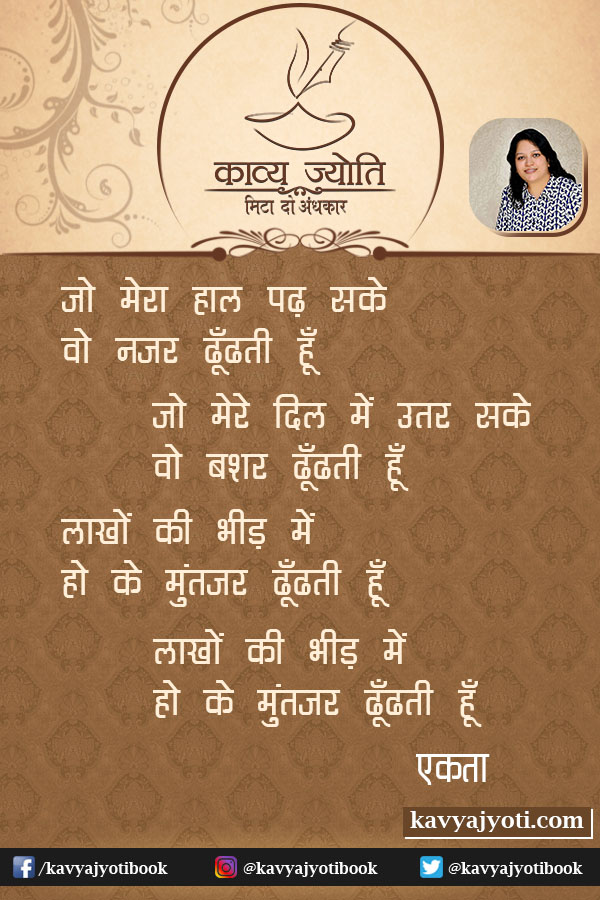 काव्य ज्योति
मिटा दो अंधकार
जो मेरा हाल पढ़ सके
वो नजर ढूँढती हूँ
जो मेरे दिल में उतर सके
वो बशर ढूँढती हूँ
लाखों की भीड़ में
हो के मुंतजर ढूँढती हूँ
लाखों की भीड़ में
हो के मुंतजर ढूँढती हूँ
एकता
kavyajyoti.com
/kavyajyotibook @kavyajyotibook @kavyajyotibook